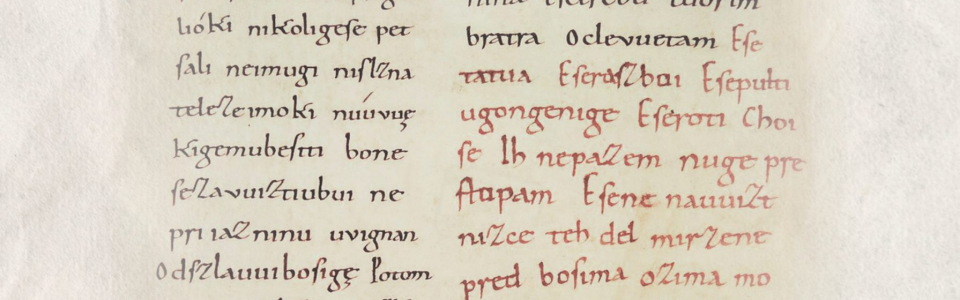 lióki nikoligese pet
sali neimugi nislzna
telezeimoki núúvvę
Kigemubesiti bone
sezavuiztiubui ne
pri iazninu uvignan
Odszlauuibosigę Potom
bratra Oclevuetam Ese
tatua Eseraszboi Esepulti
ugongenige Eseroti Choi
se Ih nepazem nuge pre
stopam Esene nauuizt
nizce teh del mirzene
pred bosima ozima mo